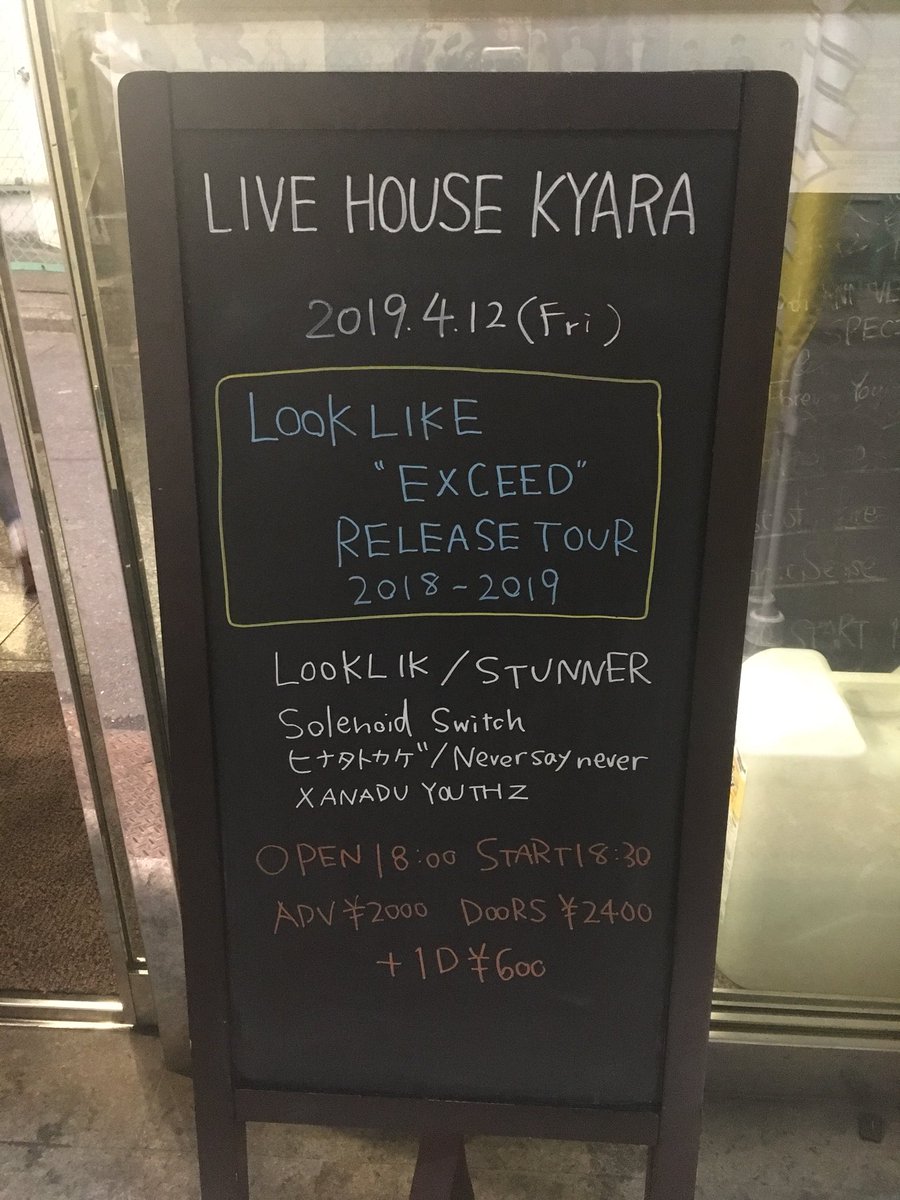 LIVE HOUSE KYARA
2019.4.12(Fri)
LOOKLIKE
"EXCEED"
RELEASE TOUR
2018-2019
LOOKLIK/STUNNER
Solenoid Switch
ヒナタトカゲ/Never say never
XANADU YOUTHZ
OPEN18:00 START18:30
ADV¥2000 DOORS¥2400
+1D¥600